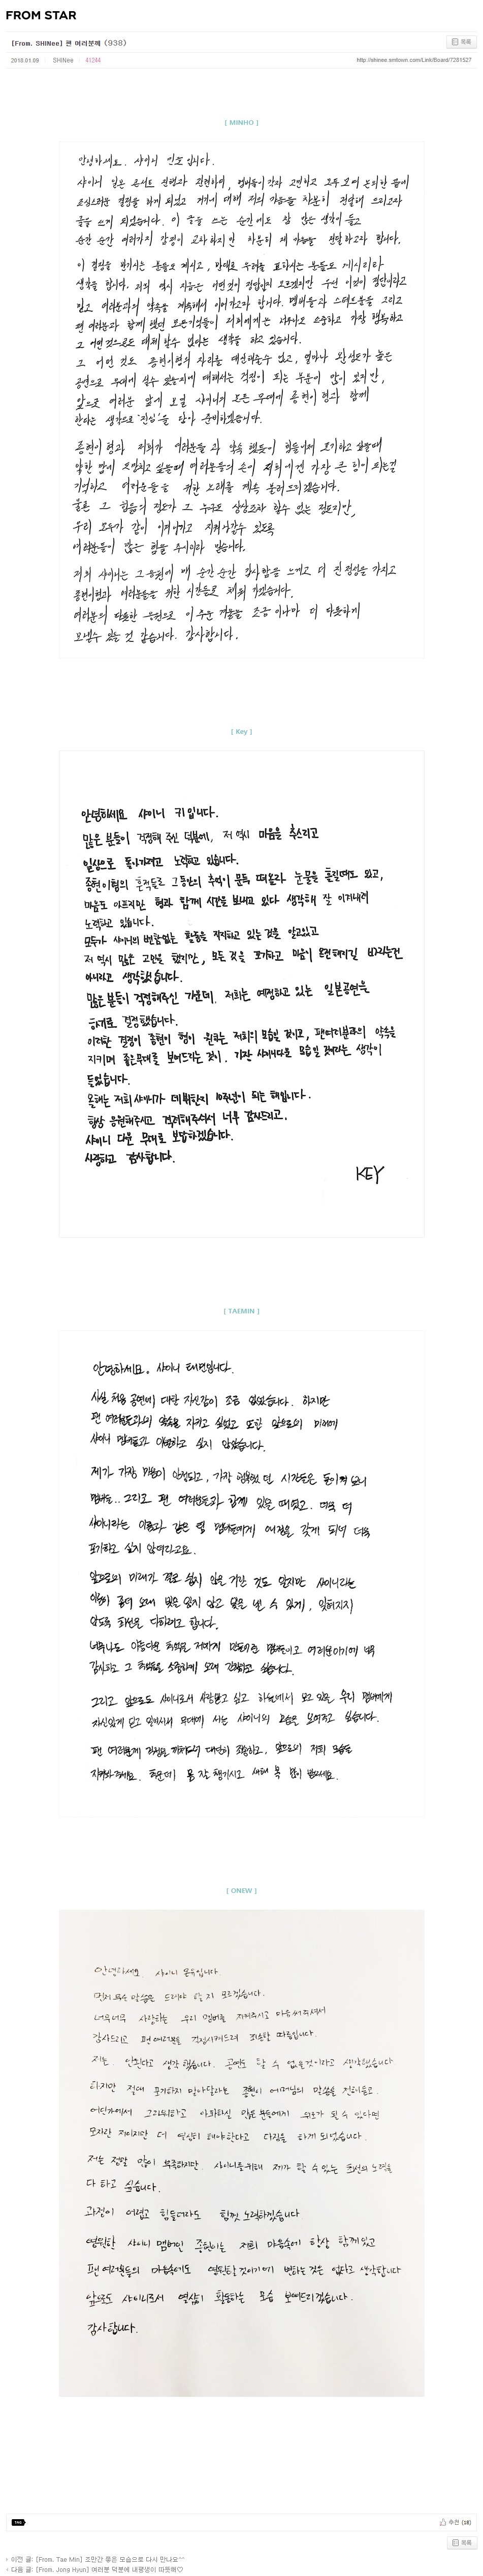 FROM STAR
[From. SHINee] 팬 여러분께 (938)
목록
2018.01.09 SHINee 41244 http://shinee.smtown.com/Link/Board/7281527
[ MINHO ]
안녕하세요. 샤이니 민호 입니다.
샤이니 일본 콘서트 진행과 관련하여, 멤버들이 각자 고민하고 모두 모여 논의한 끝에
조심스러운 결정을 하게 되었고 거기에 대해 저의 마음을 차분히 전달해 드리고자
글을 쓰게 되었습니다. 이 글을 쓰는 순간에도 참 많은 생각이 들고
순간 순간 여러가지 감정이 교차하지만 차분히 제 마음을 전달하고자 합니다.
이 결정을 반기시는 분들도 계시고, 반대로 우려를 표하시는 분들도 계시리라
생각을 합니다. 저희 역시 지금은 어떤것이 정답인지 모르겠지만 우선 이것이 정답이라고
믿고 여러분과의 약속을 계속해서 이어가고자 합니다. 멤버들과 스태프분들 그리고
팬 여러분과 함께 했던 모든기억들이 저희에게는 너무나도 소중하고 가장 행복하고
그 어떤것으로도 대체할수 없다는 생각을 하고 있습니다.
그 어떤 것도 종현이형의 자리를 대신해줄수 없고, 얼마나 완성도가 높은
공연으로 무대에 설수 있을지에 대해서는 걱정이 되는 부분이 많이 있지만,
앞으로 여러분 앞에 보일 샤이니의 모든 무대에 종현이형과 함께
한다는 생각으로 '진심'을 담아 준비하겠습니다.
종현이형과 저희가 여러분들과 약속 했듯이 힘들어서 포기하고 싶을때
약한 맘에 도망치고 싶을때 여러분들의 손이 저희에겐 가장 큰 힘이 되는걸
기억하고 여러분들을 위한 노래를 계속 불러드리겠습니다.
물론 그 힘듬의 정도가 그 누구도 상상조차 할수 없는 정도지만,
우리 모두가 같이 이겨내가고 지켜나갈수 있도록
여러분들이 많은 힘을 주시리라 믿습니다.
저희 샤이니는 그 응원에 매 순간순간 감사함을 느끼고 더 진정성을 가지고
종현이형과 여러분들을 위한 시간들로 채워 가겠습니다.
여러분의 따뜻한 응원으로 이 추운 겨울을 조금이나마 더 따뜻하게
보낼수 있는 것 같습니다. 감사합니다.
[ Key ]
안녕하세요 샤이니 키입니다.
많은 분들이 걱정해 주신 덕분에, 저 역시 마음을 추스리고
일상으로 돌아가려고 노력하고 있습니다.
종현이형의 흔적들로 그동안의 추억이 문득 떠올라 눈물을 흘릴때도 있고,
마음도 아프지만 형과 함께 시간을 보내고 있다 생각해 잘 이겨내려
노력하고 있습니다.
모두가 샤이니의 변함없는 활동을 직각하고 있는 것을 알고있고
저 역시 많은 고민을 했지만, 모든 것을 포기하고 마음이 온전해지길 바라는건
아니라고 생각했습니다.
많은 분들이 걱정해주신 가운데, 저희는 예정하고 있는 일본공연을
하기로 결정했습니다.
이러한 결정이 종현이 형이 원하는 저희의 모습일 것이고, 팬여러분과의 약속을
지키며 좋은무대를 보여드리는 것이, 가장 샤이니다운 모습일 것이라는 생각이
들었습니다.
올해는 저희 샤이니가 데뷔한지 10주년이 되는 해입니다.
항상 응원해주시고 격려해주셔서 너무 감사드리고,
샤이니 다운 무대로 보답하겠습니다.
사랑하고 감사합니다.
KEY
[ TAEMIN ]
안녕하세요. 샤이니 태민입니다.
사실 처음 공연에 대한 자신감이 조금 없었습니다. 하지만
팬 여러분들과의 약속을 지키고 싶었고 또한 앞으로의 미래에
샤이니 멤버들과 이별하고 싶지 않았습니다.
제가 가장 마음이 안정되고, 가장 행복했던 시간들은 돌이켜 보니
멤버들.. 그리고 팬 여러분들과 함께 있을 때였고. 더욱 더
샤이니라는 이름과 같은 팀 멤버들에게 애정을 갖게 되니 더욱
포기하고 싶지 않더라고요.
앞으로의 미래가 결코 쉽지 않을 거란 것도 알지만 샤이니라는
이름이 좀더 오래 빛을 잃지 않고 빛을 낼 수 있게, 잊혀지지
않도록 최선을 다하려고 합니다.
너무나도 아름다운 추억을 저에게 만들어준 멤버들이고 여러분이기에 너무
감사하고 그 추억을 소중하게 오래 간직하고 싶습니다.
그리고 앞으로도 샤이니로서 사랑받고 싶고 하늘에서 보고 있을 우리 멤버에게
자신있게 보고 있어서의 무대에 서는 샤이니의 모습을 보여주고 싶습니다.
팬 여러분께 걱정을 끼쳐드려 대단히 죄송하고, 앞으로의 저희 모습을
지켜봐주세요. 추운데 몸 잘 챙기시고 새해 복 많이 받으세요.
[ ONEW ]
안녕하세요. 샤이니 온유입니다.
먼저 무슨 말씀을 드려야 할 지 모르겠습니다.
너무너무 사랑하는 우리 멤버를 지켜주시고 마음써주셔서
감사드리고 팬 여러분을 걱정시켜드려 죄송할 따름입니다.
저는. 안된다고 생각 했습니다. 공연도 할 수 없을것이라고 생각했습니다
하지만 절대 포기하지 말아달라는 종현이 어머님의 말씀을 전해듣고.
어딘가에서 그리워하고 아파하실 많은 분들에게 위로가 될 수 있다면
모자란 저이지만 더 열심히 해야한다고 다짐을 하게 되었습니다.
저는 정말 많이 부족하지만. 샤이니를 위해 제가 할 수 있는 최선의 노력을
다 하고 싶습니다.
과정이 어렵고 힘들더라도 힘껏 노력하겠습니다
영원한 샤이니 멤버인 종현이는 저희 마음속에 항상 함께있고
팬 여러분들의 마음속에도 영원할 것이기에 변하는 것은 없다고 생각합니다
앞으로도 샤이니로서 열심히 활동하는 모습 보여드리겠습니다.
감사합니다.
TAG 추천 (18)
목록
이전 글: [From. Tae Min] 조만간 좋은 모습으로 다시 만나요^^
다음 글: [From. Jong Hyun] 여러분 덕분에 내평생이 따뜻해♡